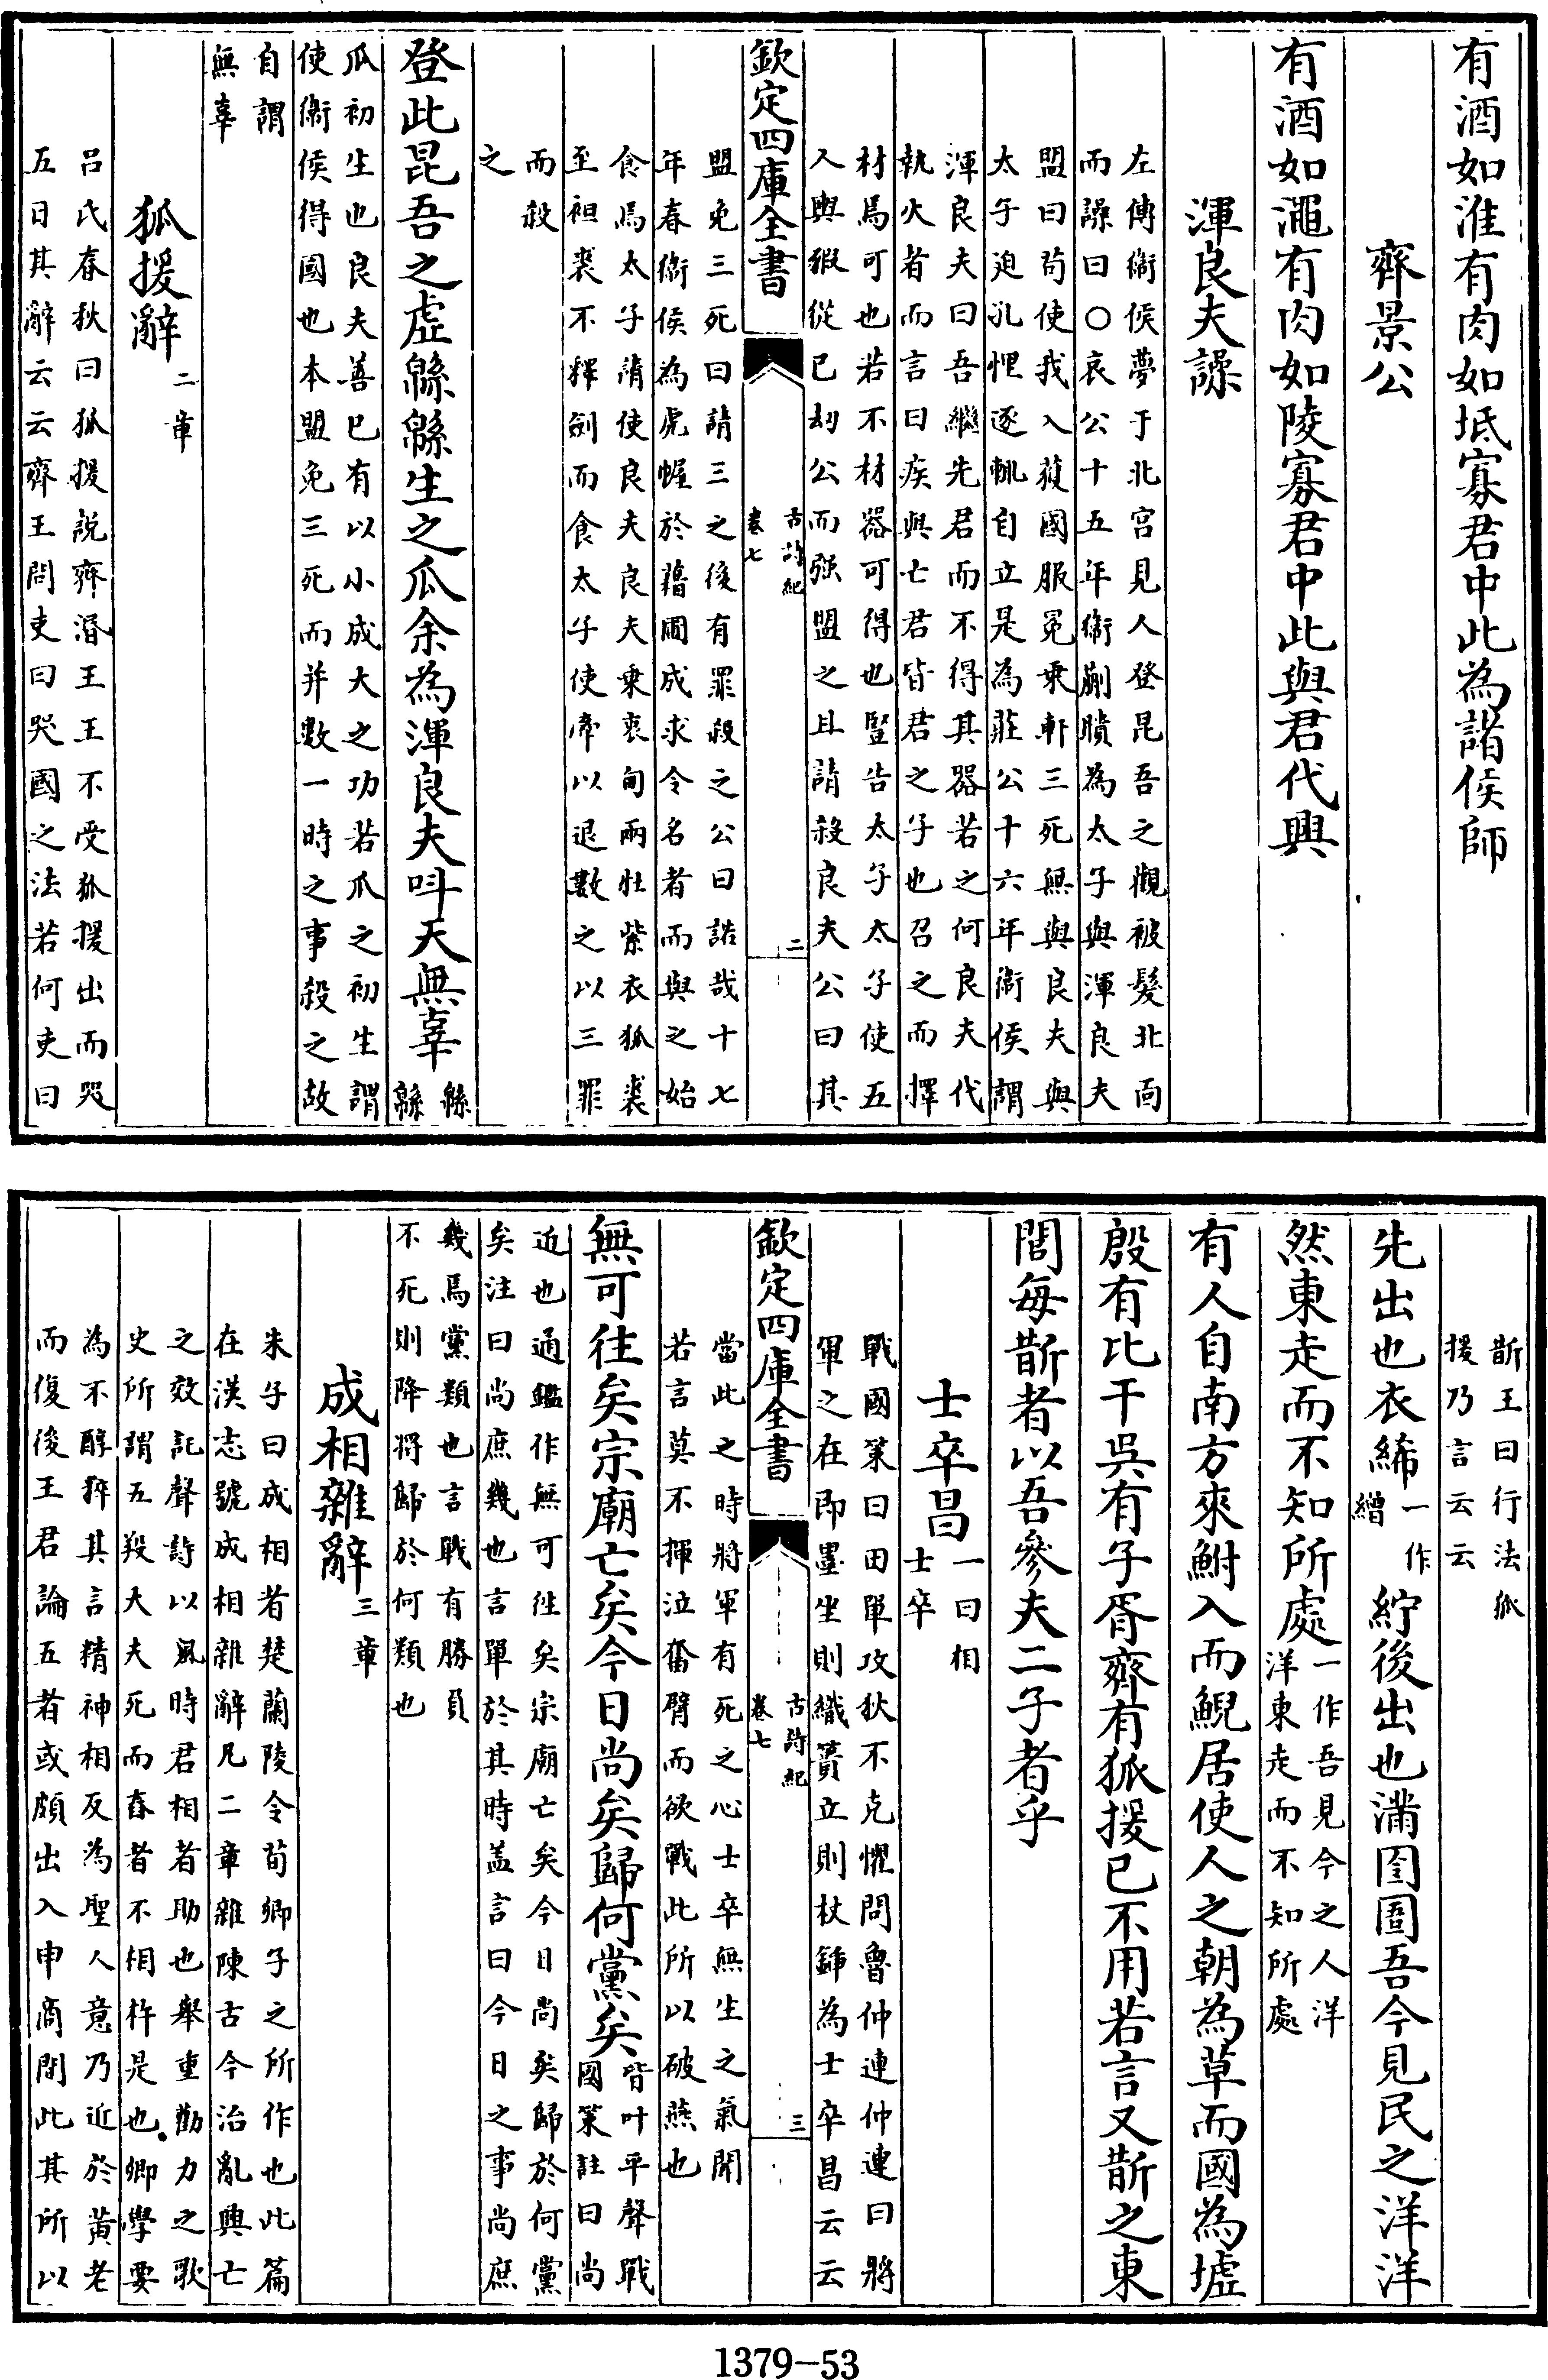 有酒如淮有肉如坻寡君中此為諸侯師
齊景公
有酒如澠有肉如陵寡君中此與君代興
渾良夫譟
左傳衞侯夢于北宮見人登昆吾之觀被髮北面
而譟曰○哀公十五年衞蒯聵為太子與渾良夫
盟曰茍使我入𫉬國服冕乗軒三死無與良夫與
太子廹孔悝逐輒自立是為莊公十六年衞侯謂
渾良夫曰吾繼先君而不得其器若之何良夫代
執火者而言曰疾與亡君皆君之子也召之而擇
材焉可也若不材器可得也豎告太子太子使五
人輿豭從已刼公而强盟之且請殺良夫公曰其
欽定四庫全書
古詩紀
卷七
二
盟免三死曰請三之後有罪殺之公曰諾哉十七
年春衞侯為虎幄於藉圃成求令名者而與之始
食焉太子請使良夫良夫乗衷甸兩牡紫衣狐裘
至袒裘不釋劍而食太子使牽以退數之以三罪
而殺
之
登此昆吾之虛緜緜生之瓜余為渾良夫呌天無辜
緜
緜
瓜初生也良夫善已有以小成大之功若瓜之初生謂
使衞侯得國也本盟免三死而并數一時之事殺之故
自謂
無辜
狐援辭
二章
吕氏春秋曰狐援説齊湣王王不受狐援出而哭
五日其辭云云齊王問吏曰哭國之法若何吏曰
斮王曰行法狐
援乃言云云
先出也衣絺
一作
繒
紵後出也滿囹圄吾今見民之洋洋
然東走而不知所處
一作吾見今之人洋
洋東走而不知所處
有人自南方來鮒入而鯢居使人之朝為草而國為墟
殷有比干吳有子胥齊有狐援已不用若言又斮之東
閭每斮者以吾參夫二子者乎
士卒昌
一曰相
士卒
戰國策曰田單攻狄不克懼問魯仲連仲連曰將
軍之在即墨坐則織蕢立則杖鍤為士卒昌云云
欽定四庫全書
古詩紀
卷七
三
當此之時將軍有死之心士卒無生之氣聞
若言莫不揮泣奮臂而欲戰此所以破燕也
無可往矣宗廟亡矣今日尚矣歸何黨矣
皆叶平聲戰
國策註曰尚
近也通鑑作無可徃矣宗廟亡矣今日尚矣歸於何黨
矣注曰尚庶幾也言單於其時盖言曰今日之事尚庶
幾焉黨類也言戰有勝負
不死則降将歸於何類也
成相雜辭
三章
朱子曰成相者楚蘭陵令荀卿子之所作也此篇
在漢志號成相雜辭凡二章雜陳古今治亂興亡
之效託聲詩以風時君相者助也舉重勸力之歌
史所謂五羖大夫死而舂者不相杵是也卿學要
為不醇粹其言精神相反為聖人意乃近於黄老
而復後王君論五者或頗出入申商間此其所以
1379-53